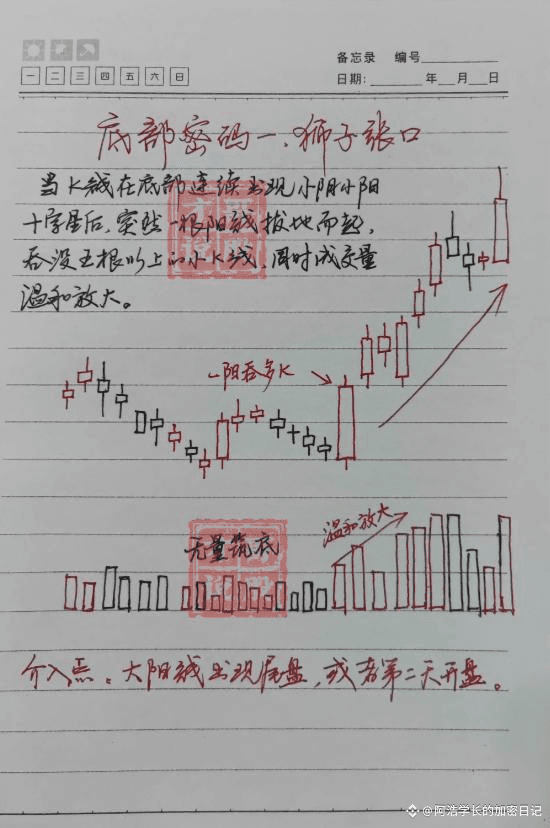 备忘录 编号
一 二 三 四 五 六 日
日期: 年 月 日
底部密码一、狮子張口
当K线在底部连续出现小阴小阳
十字星后,突然一根阳线拔地而起,
吞没五根以上的小K线,同时成交量
温和放大。
一阳吞多K
温和放大
无量筑底
介入点:大阳线出现尾盘,或者第二天开盘。
@阿浩学长的加密日记